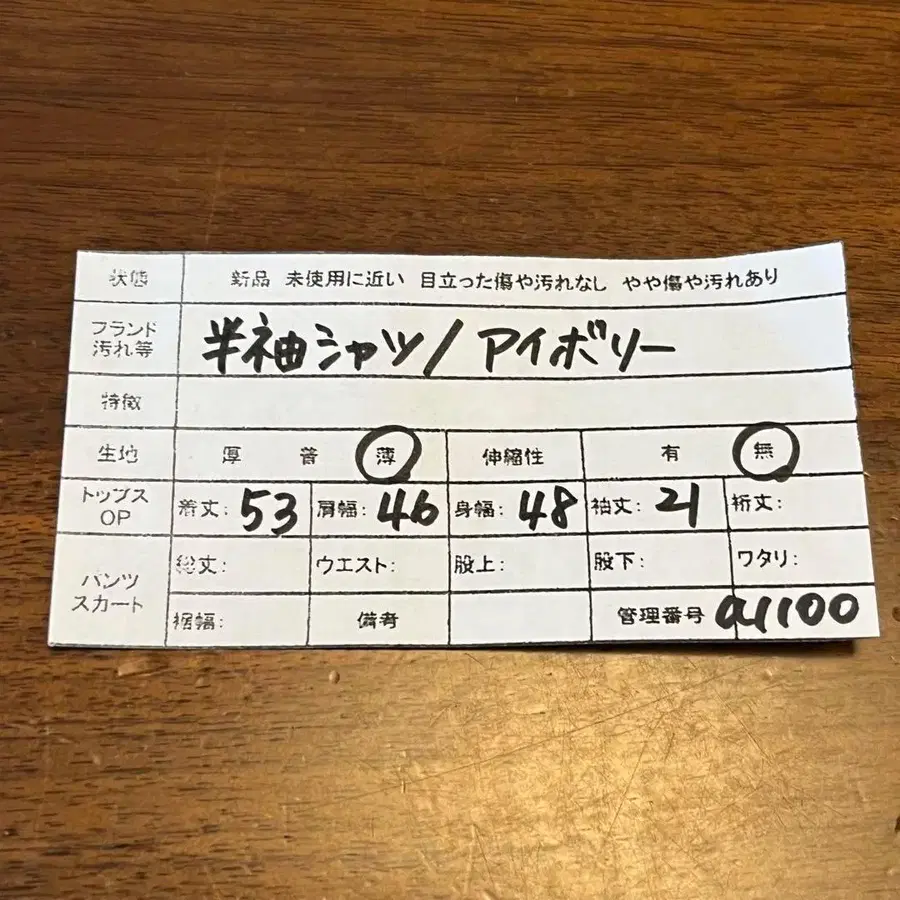 状態 新品 未使用に近い 目立った傷や汚れなし やや傷や汚れあり
ブランド
汚れ等 半袖シャツ/アイボリー
特徴
生地 厚 普 薄 伸縮性 有 無
トップス
OP 着丈: 53 肩幅: 46 身幅: 48 袖丈: 21 裄丈:
パンツ
スカート 総丈: ウエスト: 股上: 股下: ワタリ:
裾幅: 備考 管理番号 a1100